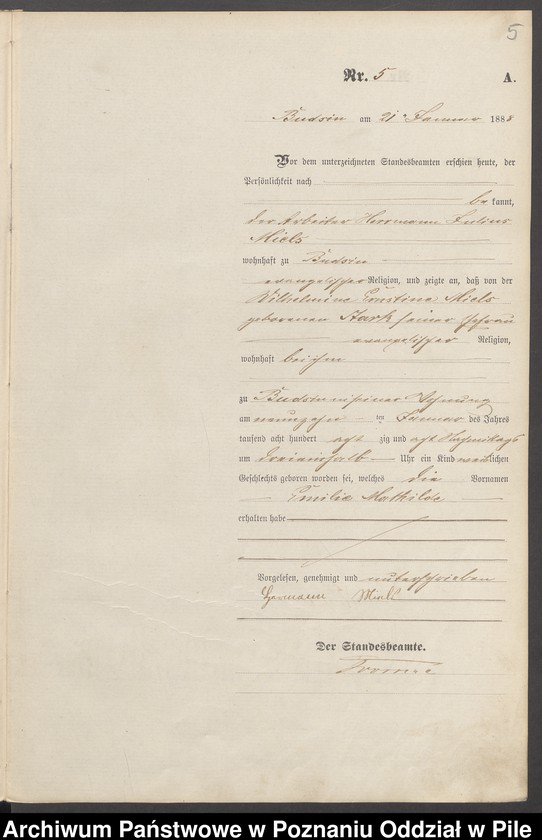 5
Nr. 5
A.
Budsin am 21 Januar 1888
Vor dem unterzeichneten Standesbeamten erschien heute, der
Persönlichkeit nach
be kannt,
der Arbeiter Herrmann Julius
Miels
wohnhaft zu Budsin
evangelischer Religion, und zeigte an, daß von der
Wilhelmine Ernstine Miels
geborenen Stark seiner Ehefrau
evangelischer Religion,
wohnhaft bei ihm
zu Budsin in seiner Wohnung
am neunzehn ten Januar des Jahres
tausend acht hundert acht zig und acht Nachmittags
um Uhr ein Kind weiblichen
Geschlechts geboren worden sei, welches die Vornamen
Emilie Mathilde
erhalten habe
Vorgelesen, genehmigt und unterschrieben
Hermann
Der Standesbeamte.
Archiwum Państwowe w Poznaniu Oddział w Pile